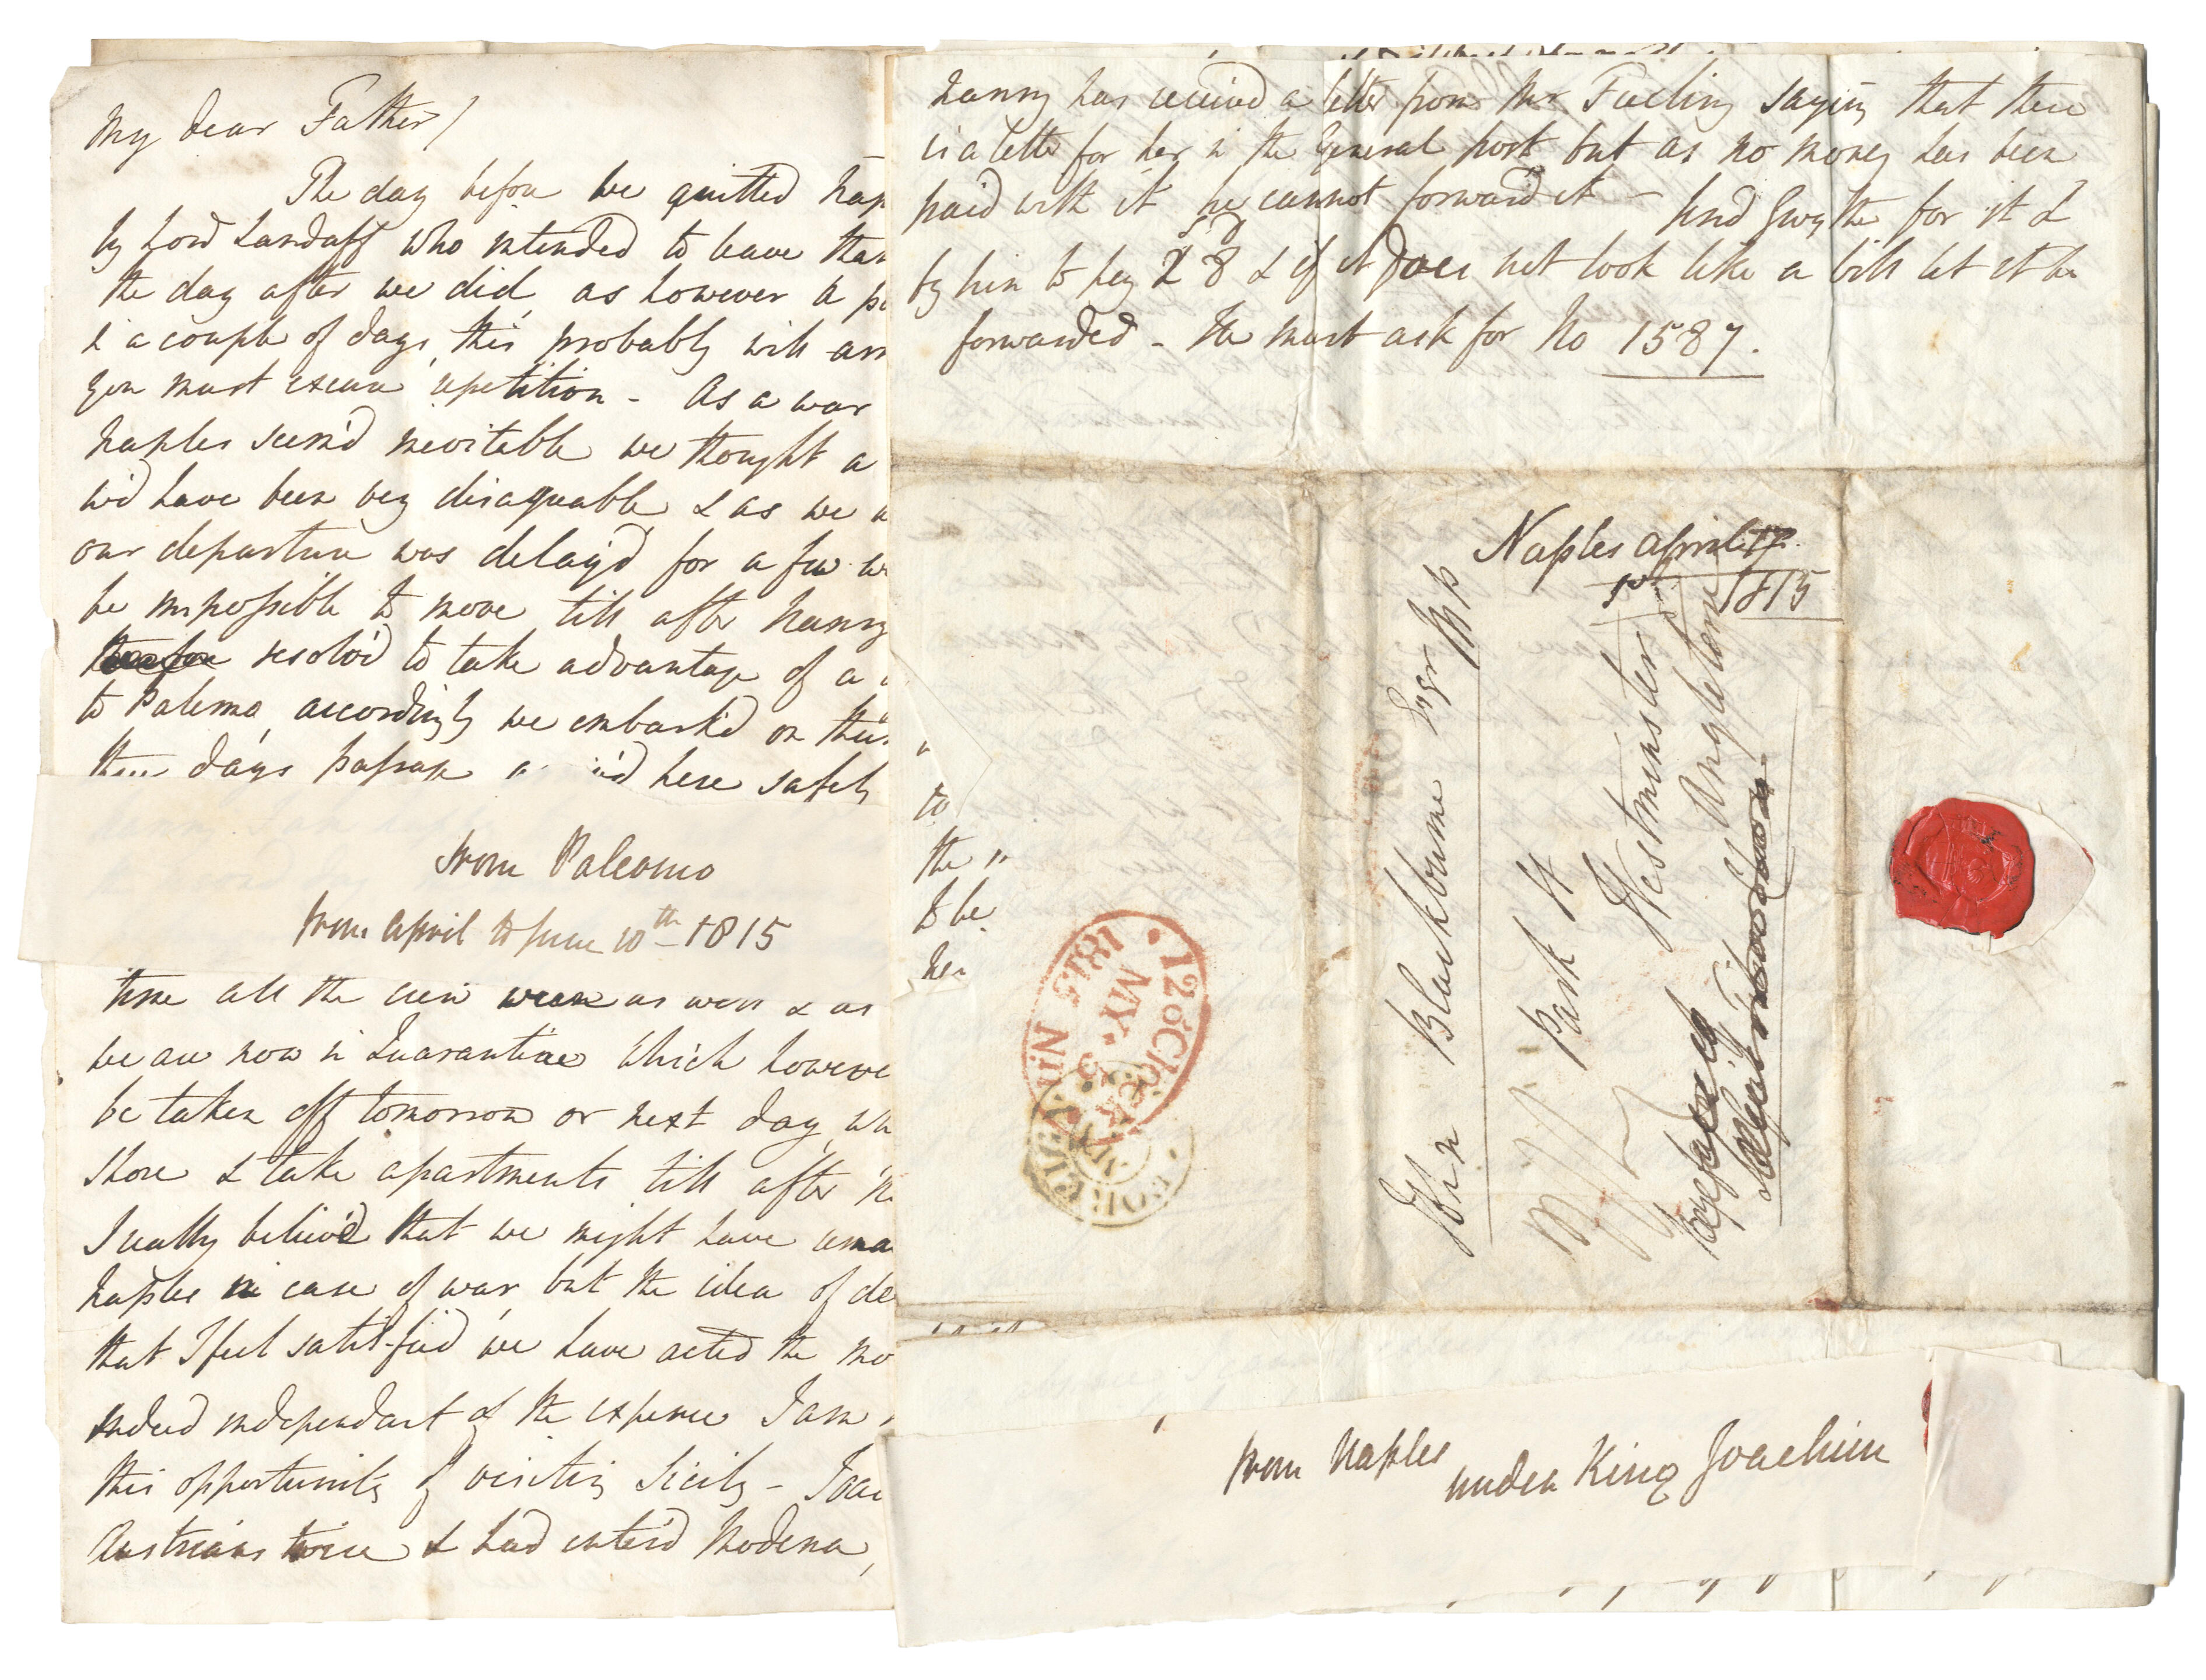 My dear Father/
The day before we quitted Nap
by Lord Landaff who intended to leave that
the day after we did, as however a
& a couple of days, this probably will arr
you must excuse repetition - As a war
Naples seem'd inevitable we thought a
wd have been very disagreeable & as we
our departure was delay'd for a few
be impossible to move till after Nanny
resolv'd to take advantage of a
to Palermo, accordingly we embark'd on thur
three days passage here safely
from Palermo
from April to June 10th 1815
time all the crew were as well & as
we are now in Quarantine which howeve
be taken off tomorrow or next day,
shore & take apartments till after
I really believ'd that we might have rema
Naples in case of war but the idea of de
that I feel satisfied we have acted the mo
indeed independant of the expence I am
this opportunity of visiting Sicily -
Austrians twice & had enter'd Modena,
Nanny has received a letter from Mr Freeling saying that there
is a letter for her in the General post but as no money has been
paid with it he cannot forward it - Send Gwyther for it &
by him to pay 2s 8D & if it does not look like a bill let it be
forwarded - He must ask for No 1587.
Naples April 17
1815
John Blackburne Esqr MP
Park St
Westminster
Angleterre
to
the "
& be
her
12 o'Clock
MY. 5
1815 Nn
FOREIGN
from Naples
under King Joachim